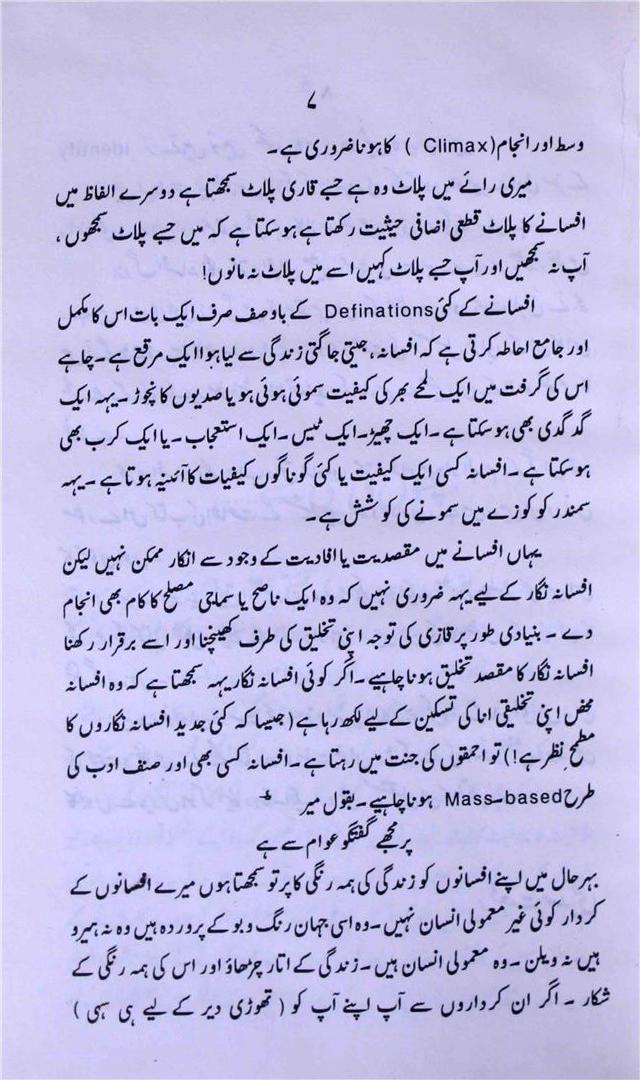 ۷
وسط اور انجام (Climax) کا ہونا ضروری ہے۔
میری رائے میں پلاٹ وہ ہے جسے قاری پلاٹ سمجھتا ہے دوسرے الفاظ میں
افسانے کا پلاٹ قطعی اضافی حیثیت رکھتا ہے ہو سکتا ہے کہ میں جسے پلاٹ سمجھوں،
آپ نہ سمجھیں اور آپ جسے پلاٹ کہیں اسے میں پلاٹ نہ مانوں!
افسانے کے کئی Definations کے باوصف صرف ایک بات اس کا مکمل
اور جامع احاطہ کرتی ہے کہ افسانہ، جیتی جاگتی زندگی سے لیا ہوا ایک مرقع ہے۔ چاہے
اس کی گرفت میں ایک لمحے بھر کی کیفیت سموئی ہوئی ہو یا صدیوں کا نچوڑ۔ یہہ ایک
گدگدی بھی ہو سکتا ہے۔ ایک چھیڑ۔ ایک ٹیس۔ ایک استعجاب۔ یا ایک کرب بھی
ہو سکتا ہے۔ افسانہ کسی ایک کیفیت یا کئی گوناگوں کیفیات کا آئینہ ہوتا ہے۔ یہہ
سمندر کو کوزے میں سمونے کی کوشش ہے۔
یہاں افسانے میں مقصدیت یا افادیت کے وجود سے انکار ممکن نہیں لیکن
افسانہ نگار کے لیے یہہ ضروری نہیں کہ وہ ایک ناصح یا سماجی مصلح کا کام بھی انجام
دے۔ بنیادی طور پر قاری کی توجہ اپنی تخلیق کی طرف کھینچنا اور اسے برقرار رکھنا
افسانہ نگار کا مقصد تخلیق ہونا چاہیے۔ اگر کوئی افسانہ نگار یہہ سمجھتا ہے کہ وہ افسانہ
محض اپنی تخلیقی انا کی تسکین کے لیے لکھ رہا ہے (جیسا کہ کئی جدید افسانہ نگاروں کا
مطمحِ نظر ہے!) تو احمقوں کی جنت میں رہتا ہے۔ افسانہ کسی بھی اور صنف ادب کی
طرح Mass-based ہونا چاہیے۔ بقول میر
پر مجھے گفتگو عوام سے ہے
بہر حال میں اپنے افسانوں کو زندگی کی ہمہ رنگی کا پرتو سمجھتا ہوں میرے افسانوں کے
کردار کوئی غیر معمولی انسان نہیں۔ وہ اسی جہان رنگ و بو کے پروردہ ہیں وہ نہ ہیرو
ہیں نہ ویلن۔ وہ معمولی انسان ہیں۔ زندگی کے اتار چڑھاؤ اور اس کی ہمہ رنگی کے
شکار۔ اگر ان کرداروں سے آپ اپنے آپ کو (تھوڑی دیر کے لیے ہی سہی)